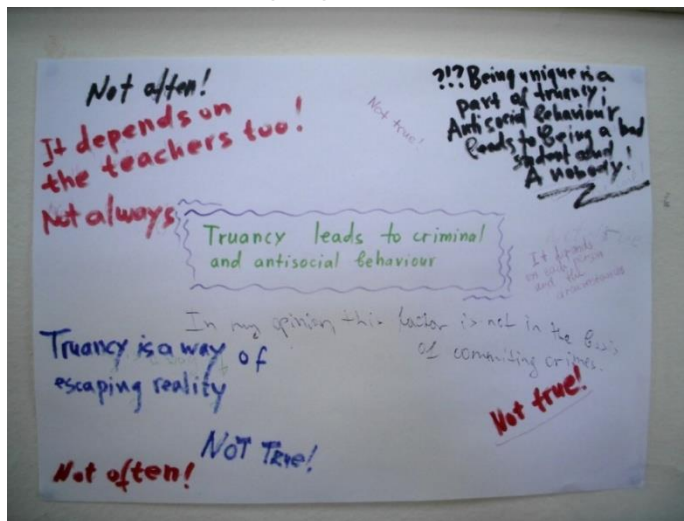 Not often!
It depends on
the teachers too!
Not always
Not true!
?!? Being unique is a
part of truency;
Antisocial Behaviour
leads to Being a bad
student and
A nobody!
Truancy leads to criminal
and antisocial behaviour
It depends
on each person
and the
circumstances
In my opinion this factor is not in the basis
of commiting crimes.
Truancy is a way of
escaping reality
Not true!
NOT TRUE!
Not often!